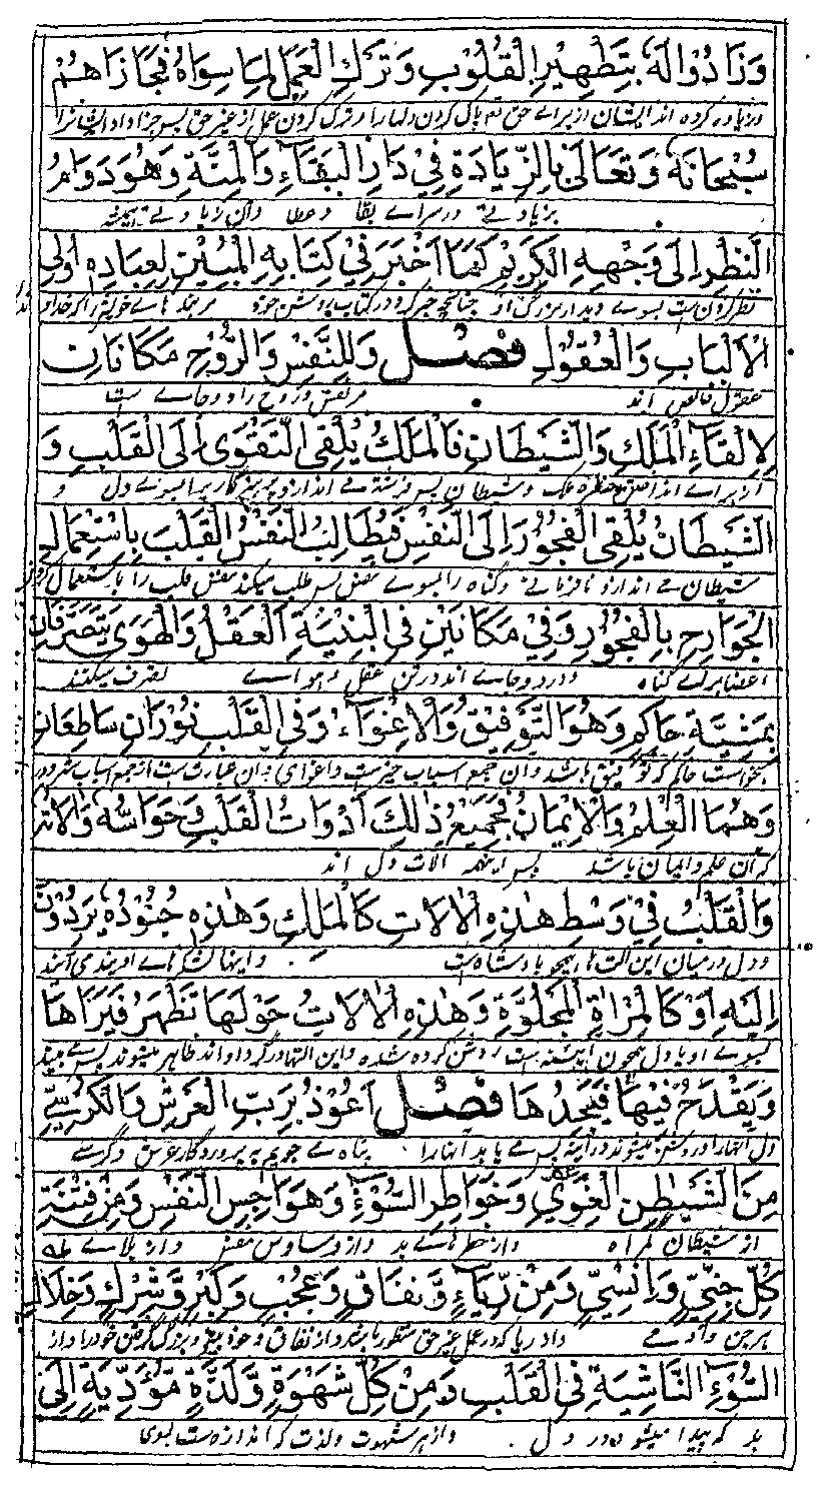 وَزَادُوْا لَهٗ بِتَطْهِيْرِ الْقُلُوْبِ وَتَرْكِ الْعَمَلِ لِمَا سِوَاهُ فَجَازَاهُمْ
وزیاده کرده اند ایشان از براے حق به پاک کردن دلها را و ترک کردن عمل از غیر حق پس جزا داد ایشانرا
سُبْحَانَهٗ وَتَعَالٰى بِالزِّيَادَةِ فِيْ دَارِ الْبَقَاءِ وَالْمِنَّةِ وَهُوَ دَوَامُ
بزیادتے در سراے بقا و عطا وآن زیادتے همیشه
النَّظْرِ اِلٰى وَجْهِهِ الْكَرِيْمِ كَمَا اَخْبَرَ فِيْ كِتَابِهِ الْمُبِيْنِ لِعِبَادِهٖ اُولِي
نظر کردن ست بسوے دیدار بزرگ او چنانچه خبر کرد در کتاب روشن خود مر بنده هاے خویش را که خداوند
الْاَلْبَابِ وَالْعُقُوْلِ فصل وَلِلنَّفْسِ وَالرُّوْحِ مَكَانَانِ
عقول خالص اند مر نفس و روح را دو جاے ست
لِاِلْقَاءِ الْمَلَكِ وَالشَّيْطَانِ فَالْمَلَكُ يُلْقِي التَّقْوٰى اِلَى الْقَلْبِ وَ
از براے انداختن خطره ملک و شیطان پس فرشته مے اندازد پرهیزگاری را بسوے دل و
الشَّيْطَانُ يُلْقِي الْفُجُوْرَ اِلَى النَّفْسِ فَيُطَالِبُ النَّفْسُ الْقَلْبَ بِاسْتِعْمَالِ
شیطان مے اندازد نافرمانے و گناه را بسوے نفس پس طلب میکند نفس قلب را باستعمال کردن
الْجَوَارِحِ بِالْفُجُوْرِ وَفِيْ مَكَانَيْنِ فِي الْبِنْيَةِ الْعَقْلُ وَالْهَوٰى يَتَصَرَّفَانِ
اعضا براے گناه و در دو جاے اند در تن عقل و هواے تصرف میکنند
بِمَشِيَّةِ حَاكِمٍ وَهُوَ التَّوْفِيْقُ وَالْاِغْوَاءُ وَفِي الْقَلْبِ نُوْرَانِ سَاطِعَانِ
بخواست حاکم که توفیق باشد وآن جمع اسباب خیرست واغوای وآن عبارت ست از جمع اسباب شر و در
وَهُمَا الْعِلْمُ وَالْاِيْمَانُ فَجَمِيْعُ ذٰلِكَ اَدَوَاتُ الْقَلْبِ وَحَوَاسُّهٗ وَاٰلَاتُهٗ
که آن علم و ایمان باشد پس اینهمه آلات دل اند
وَالْقَلْبُ فِيْ وَسْطِ هٰذِهِ الْاٰلَاتِ كَالْمَلِكِ وَهٰذِهٖ جُنُوْدُهٗ يَرِدُوْنَ
و دل درمیان این آلت ها همچو پادشاه ست و اینها لشکرهاے او بدی آیند
اِلَيْهِ اَوْ كَالْمِرْاٰةِ الْمَجْلُوَّةِ وَهٰذِهِ الْاٰلَاتُ حَوْلَهَا تَظْهَرُ فَيَرَاهَا
بسوے او یا دل همچون آئینه ست روشن کرده شده و این آلتها در گرد او اند ظاهر میشوند پس مے بیند
وَيَقْدَحُ فِيْهَا فَيَجِدُهَا فصل اَعُوْذُ بِرَبِّ الْعَرْشِ وَالْكُرْسِيِّ
پناه مے جویم به پروردگار عرش و کرسے
مِنَ الشَّيْطٰنِ الْغَوِيِّ وَخَوَاطِرِ السُّوْءِ وَهَوَاجِسِ النَّفْسِ وَمِنْ فِتْنَةِ
از شیطان گمراه و از خطره هاے بد و از وساوس نفس و از بلاے
كُلِّ جِنِّيٍّ وَاِنْسِيٍّ وَمِنْ رِيَاءٍ وَّنِفَاقٍ وَعُجْبٍ وَكِبْرٍ وَّشِرْكٍ وَخِلَالِ
هر جن و آدمے و از ریا که در عمل غیر حق منظور باشد و از نفاق و خود بینی و بزرگ گرفتن خود را و از
السُّوْءِ النَّاشِئَةِ فِي الْقَلْبِ وَمِنْ كُلِّ شَهْوَةٍ وَّلَذَّةٍ مُّؤَدِّيَةٍ اِلٰى
بد که پیدا میشود در دل و از هر شهوت و لذت که اندازه ست بسوی